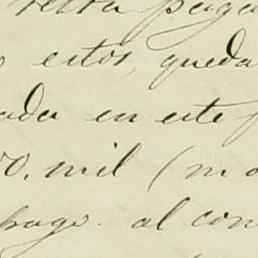 resta paga
estos, queda
ada en este
0. mil (m
pago. al con